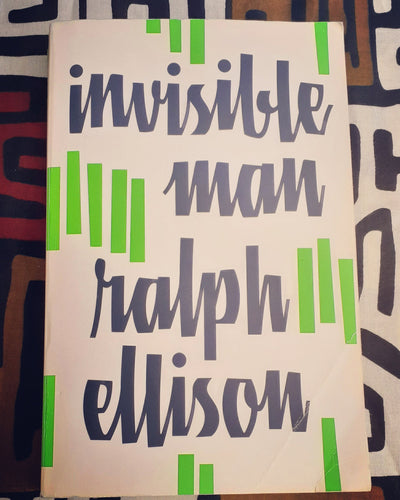 invisible
man
ralph
ellison